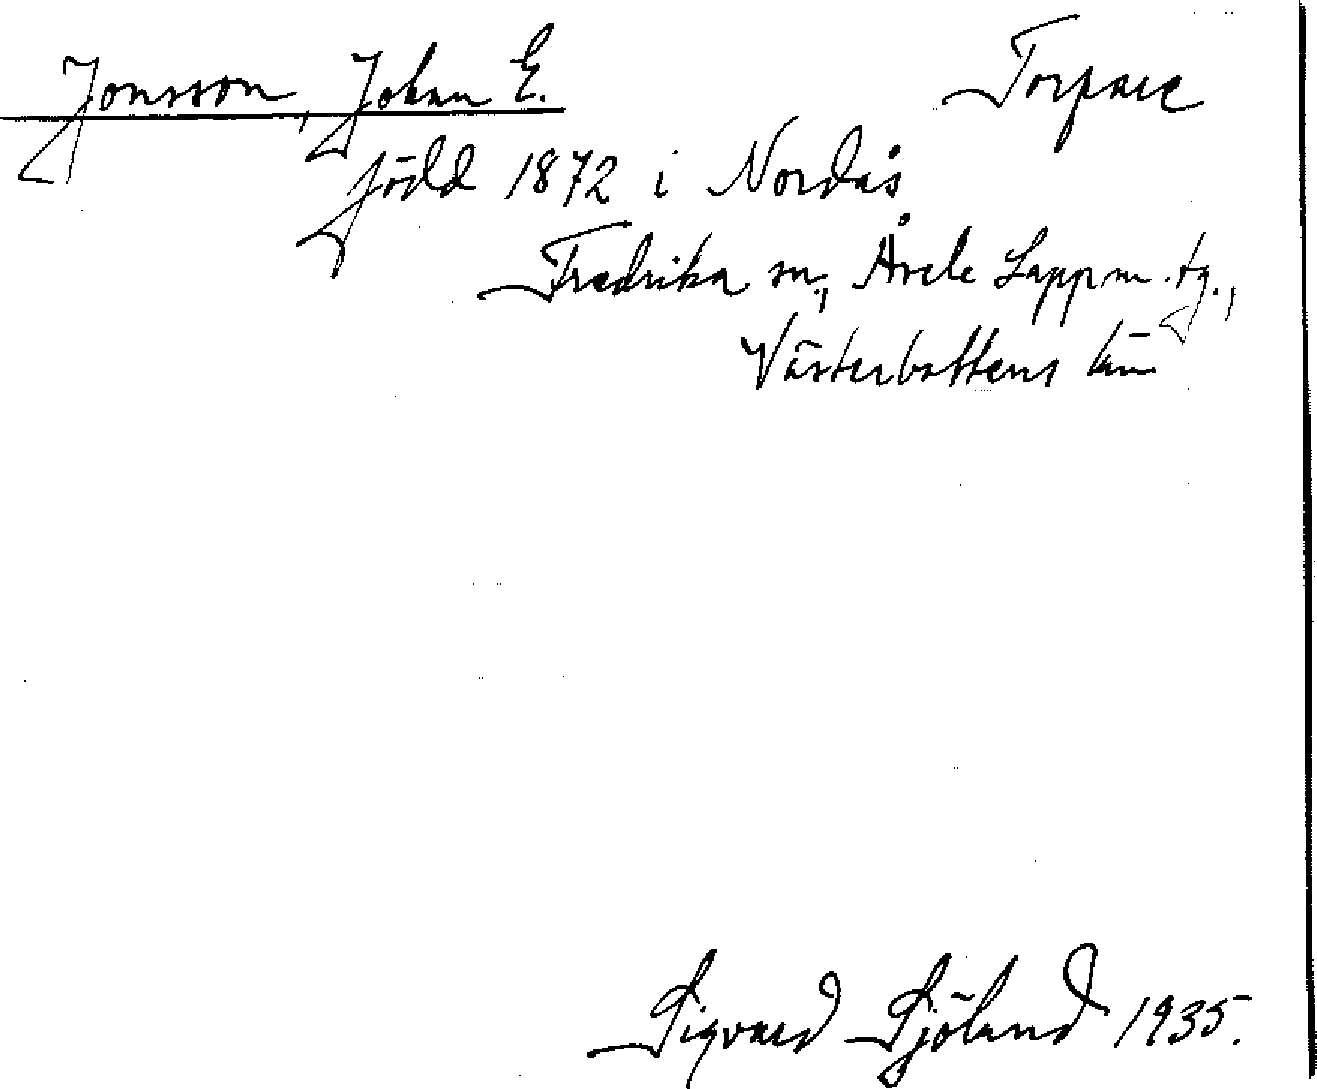 Jonsson, Johan E. Torpare
född 1872 i Nordås
Fredrika sn, Åsele Lappm. tg.,
Västerbottens län
Sigvard Sjöland 1935.